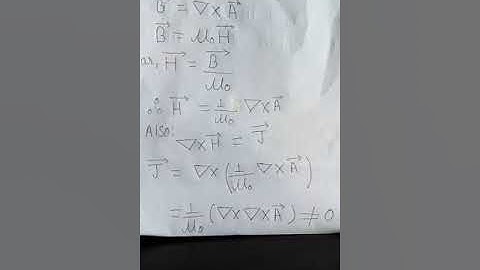 B⃗ = ▽×A⃗
B⃗ = μ₀H⃗
or, H⃗ = B⃗/μ₀
∴ H⃗ = 1/μ₀ ▽×A⃗
Also:
▽×H⃗ = J⃗
J⃗ = ▽×(1/μ₀ ▽×A⃗)
= 1/μ₀ (▽×▽×A⃗) ≠ 0